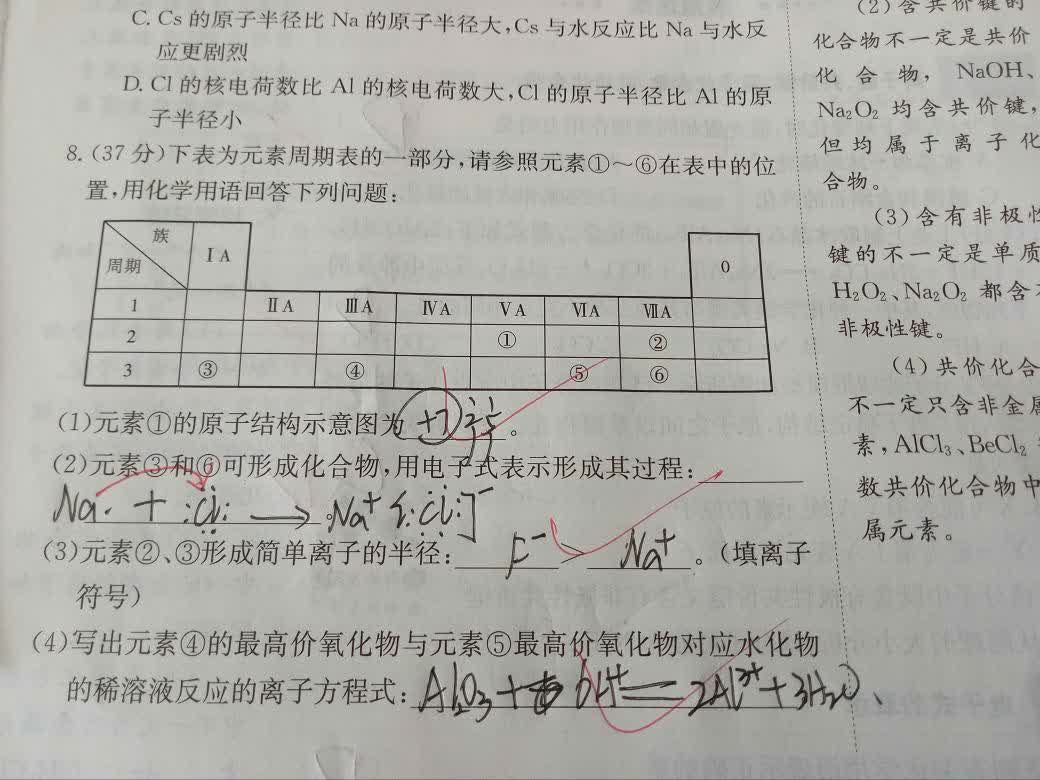 C. Cs 的原子半径比 Na 的原子半径大,Cs 与水反应比 Na 与水反
应更剧烈
D. Cl 的核电荷数比 Al 的核电荷数大,Cl 的原子半径比 Al 的原
子半径小
8. (37 分)下表为元素周期表的一部分,请参照元素①~⑥在表中的位
置,用化学用语回答下列问题:
族
周期 ⅠA 0
1 ⅡA ⅢA ⅣA ⅤA ⅥA ⅦA
2 ① ②
3 ③ ④ ⑤ ⑥
(1)元素①的原子结构示意图为 +7 2 5 。
(2)元素③和⑥可形成化合物,用电子式表示形成其过程:
Na· + :Cl: → Na⁺ [:Cl:]⁻
(3)元素②、③形成简单离子的半径: F⁻ > Na⁺ 。(填离子
符号)
(4)写出元素④的最高价氧化物与元素⑤最高价氧化物对应水化物
的稀溶液反应的离子方程式: Al₂O₃ + 6H⁺ = 2Al³⁺ + 3H₂O
(2)含共价键的
化合物不一定是共价
化合物, NaOH、
Na₂O₂ 均含共价键,
但均属于离子化
合物。
(3)含有非极性
键的不一定是单质
H₂O₂、Na₂O₂ 都含
非极性键。
(4)共价化合
不一定只含非金属
素,AlCl₃、BeCl₂
数共价化合物中
属元素。